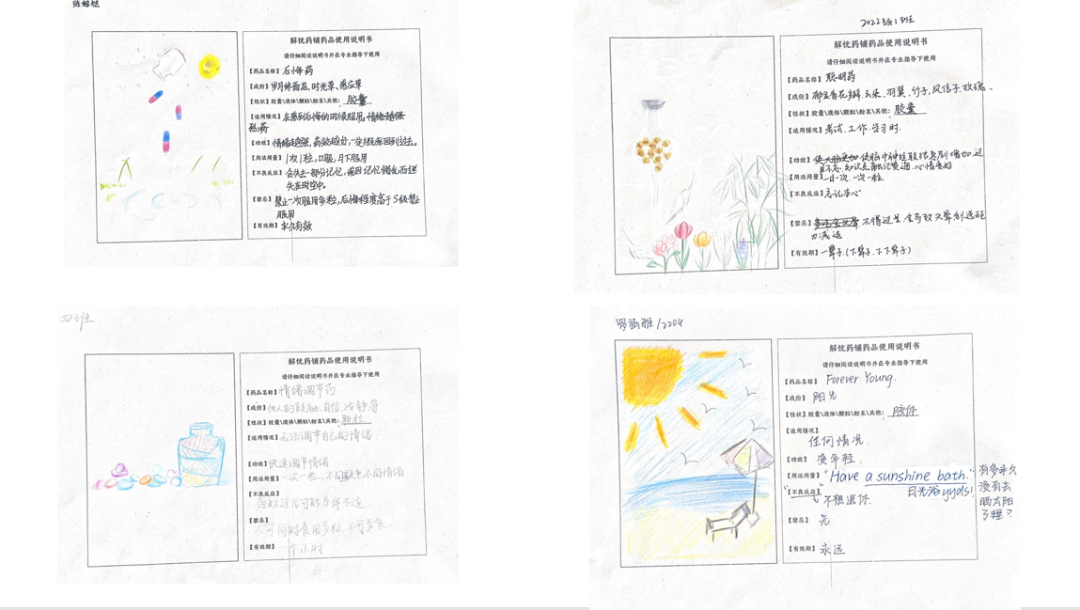 陈
解忧药铺药品使用说明书
请仔细阅读说明书并在专业指导下使用
【药品名称】后悔药
【成份】岁月
时光草、
【性状】胶囊\液体\颗粒\粉末\其他：胶囊
【适用情况】在感到后悔的时候服用，情绪越强
【功效】情绪越强，药效越好，一定概率回到过去。
【用法用量】1次1粒，口服，月下服用
【不良反应】会失去一部分记忆，或因记忆错乱而迷
失在时空中。
【禁忌】禁止一次服用多粒，后悔程度高于5级禁止
服用
【有效期】永久有效
2022级1班
解忧药铺药品使用说明书
请仔细阅读说明书并在专业指导下使用
【药品名称】聪明药
【成份】郁金香花瓣、云朵、羽翼、竹子、风信子、玫瑰、
【性状】胶囊\液体\颗粒\粉末\其他：胶囊
【适用情况】考试、工作、学习时
【功效】使脑中神经联结急剧增加，过
目不忘，知识点融记贯通，心情愉悦
【用法用量】一日一次，一次一粒
【不良反应】忘记本心
【禁忌】不得过
力减退
【有效期】一辈子（下辈子、下下辈子）
四班
解忧药铺药品使用说明书
请仔细阅读说明书并在专业指导下使用
【药品名称】情绪调节药
【成份】他人的鼓励、自信、冷静等
【性状】胶囊\液体\颗粒\粉末\其他：颗粒
【适用情况】无法调节自己的情绪
【功效】快速调节情绪
【用法用量】一次一粒，不同颜色不同情绪
【不良反应】
药效过后可能身体不适
【禁忌】
不可同时食用多粒，不可多食
【有效期】一个小时
/2204
解忧药铺药品使用说明书
请仔细阅读说明书并在专业指导下使用
【药品名称】Forever Young.
【成份】阳光
【性状】胶囊\液体\颗粒\粉末\其他：
【适用情况】
任何情况.
【功效】变年轻.
【用法用量】"Have a sunshine bath."
日光浴yyds!
有多久
没有去
晒太阳
了呢？
【不良反应】不想退休.
【禁忌】无
【有效期】永远